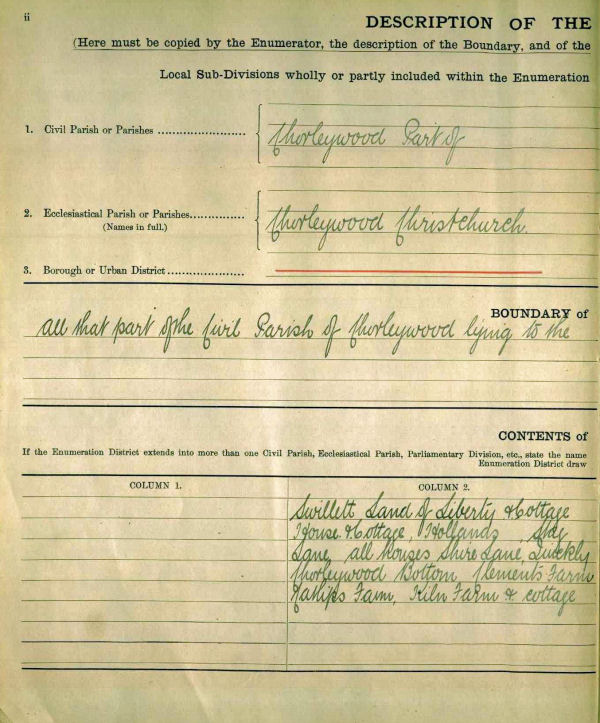 ii
DESCRIPTION OF THE
(Here must be copied by the Enumerator, the description of the Boundary, and of the
Local Sub-Divisions wholly or partly included within the Enumeration
1. Civil Parish or Parishes ........................ Chorleywood Part of
2. Ecclesiastical Parish or Parishes............... Chorleywood Christchurch.
(Names in full.)
3. Borough or Urban District.....................
BOUNDARY of
all that part of the Civil Parish of Chorleywood lying to the
CONTENTS of
If the Enumeration District extends into more than one Civil Parish, Ecclesiastical Parish, Parliamentary Division, etc., state the name
Enumeration District draw
COLUMN 1. COLUMN 2.
Swillett Land of Liberty & Cottage
House & Cottage, Hollands, Stag
Lane, all houses Shire Lane, Quickly
Chorleywood Bottom, Clements Farm
Farm, Kiln Farm & cottage